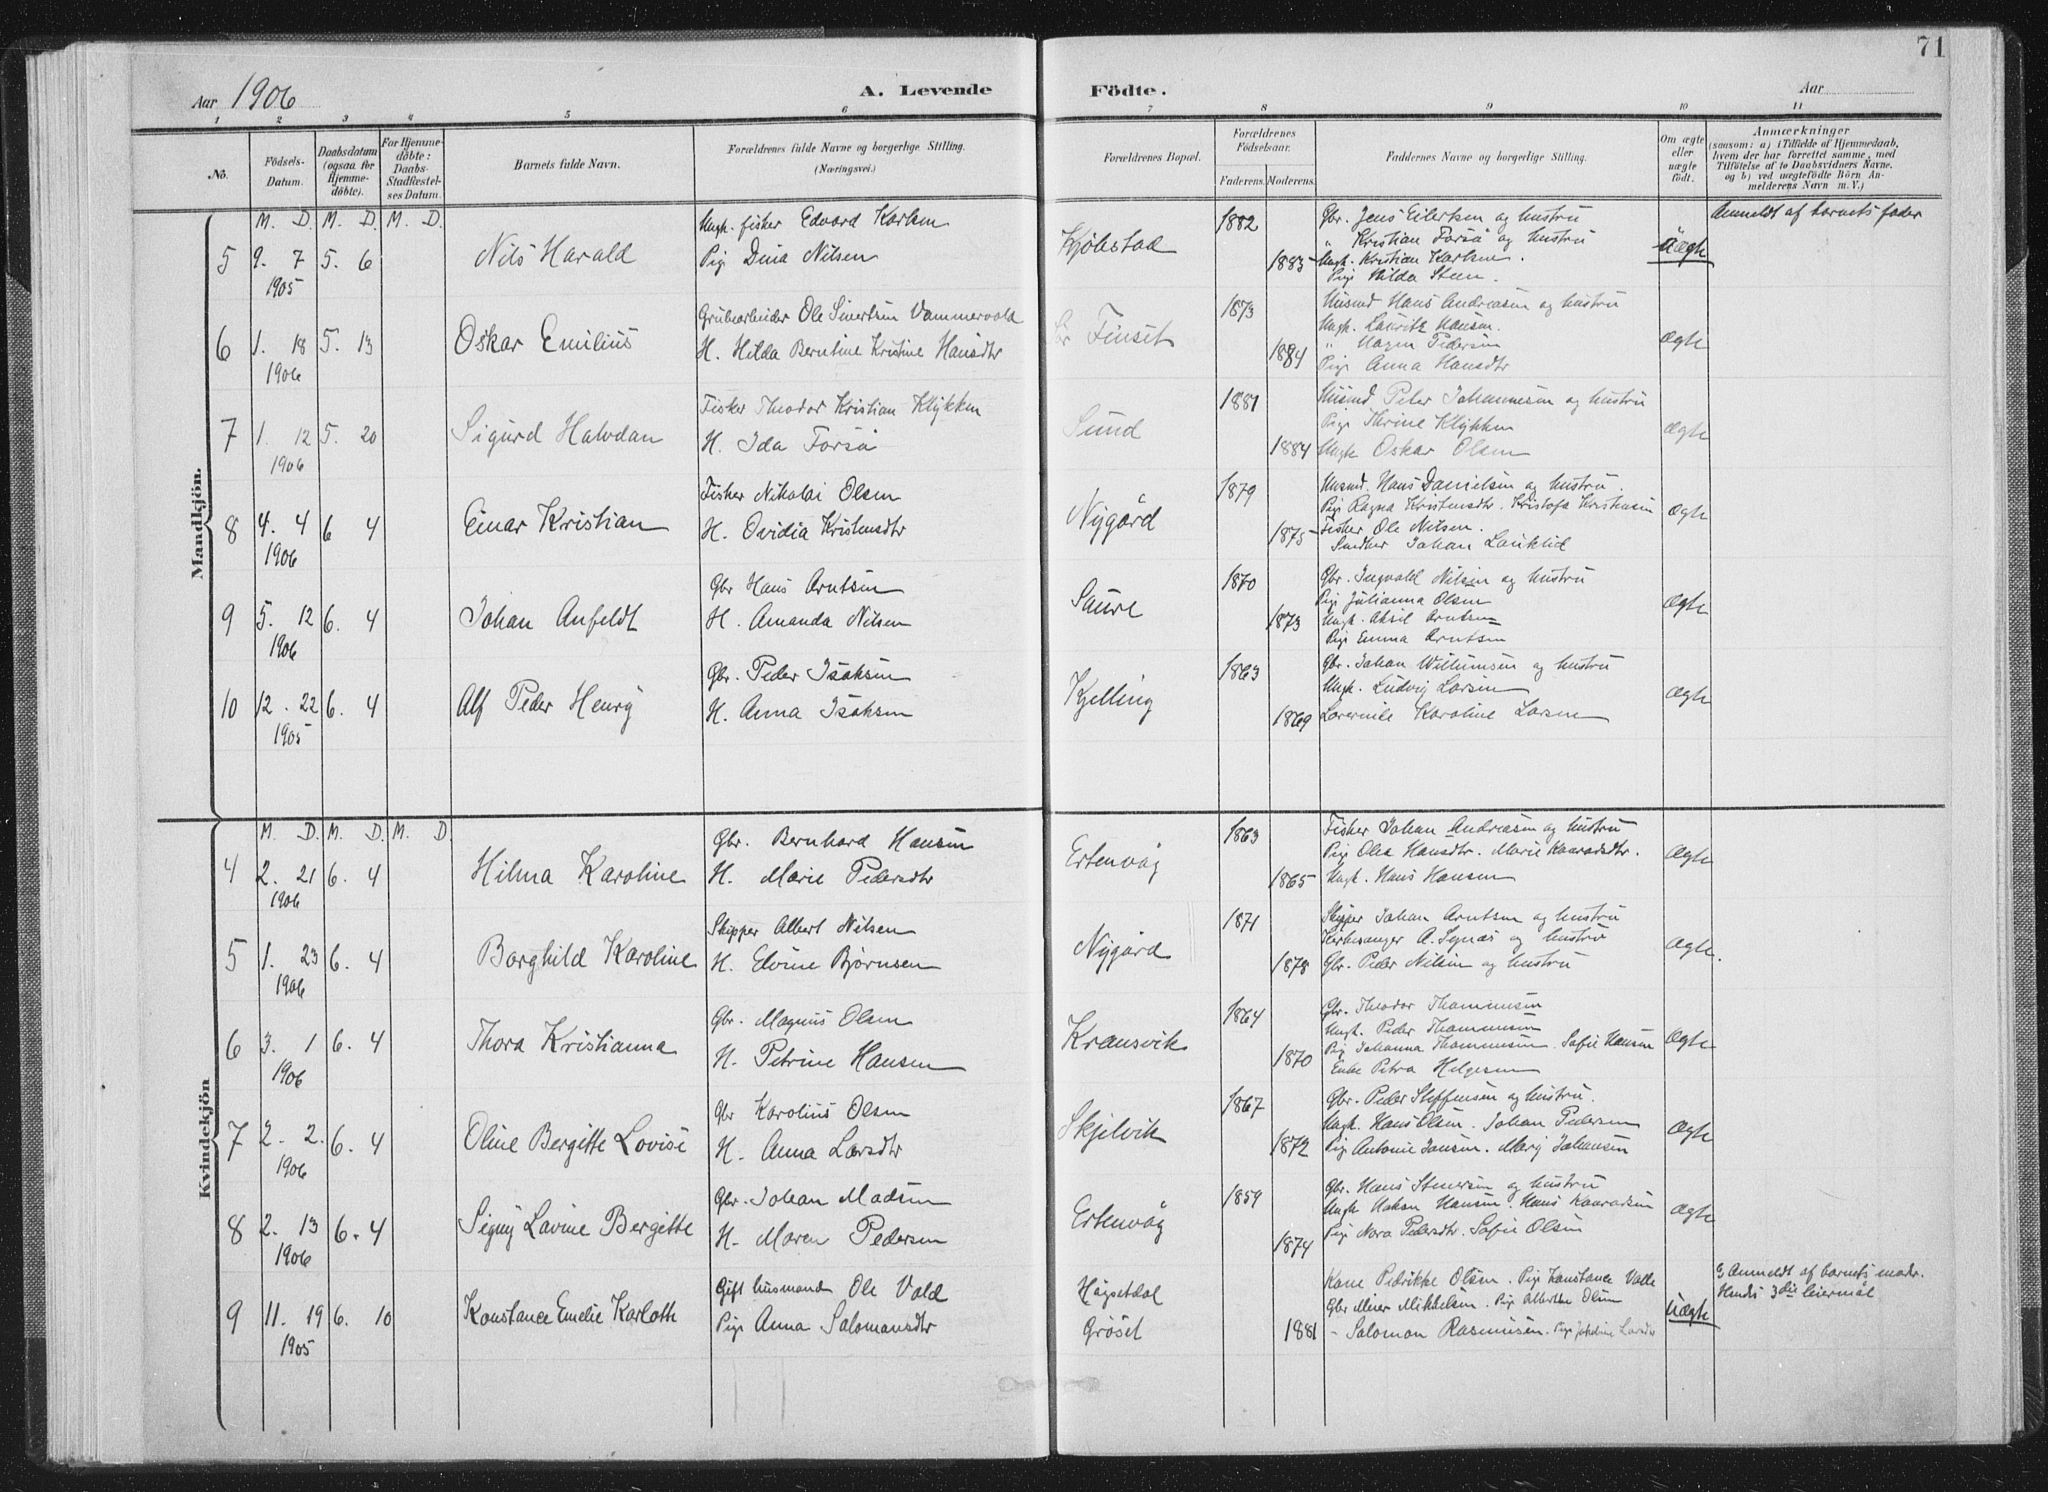 71
Aar 1906
A. Levende Födte.
Aar
1 2 3 4 5 6 7 8 9 10 11
No.
Födsels-Datum.
Daabsdatum (ogsaa for Hjemme-döbte).
For Hjemme-döbte: Daabs-Stadfæstel-ses Datum.
Barnets fulde Navn.
Forældrenes fulde Navne og borgerlige Stilling. (Næringsvei.)
Forældrenes Bopæl.
Forældrenes Födselsaar.
Faderens. Moderens.
Faddernes Navne og borgerlige Stilling.
Om ægte eller uægte födt.
Anmærkninger
(saasom: a) i Tilfælde af Hjemmedaab, hvem der har forrettet samme, med Tilföielse af to Daabsvidners Navne, og b) ved uægtefödte Börn Anmelderens Navn m. V.)
Mandkjön.
M. D. M. D. M. D.
5 9. 7 1905 5. 6 Nils Harald
Ungk. fisker Edvard Karlsen
Pig. Dina Nilsen
Kjölstad 1882 1883
Gbr. Jens Eilertsen og hustru
" Kristian Forså og hustru
Ungk. Kristian Karlsen.
Pig. Hilda Steen.
Uægte
Anmeldt af barnets fader
6 1. 18 1906 5. 13 Oskar Emilius
Grubearbeider Ole Sivertsen Vammervold
H. Hilda Berntine Kristine Hansdtr
Finset 1873 1884
Husmd Hans Andreasen og hustru
Ungk. Lauritz Hansen.
" Hagen Pedersen
Pige Anna Hansdtr
Ægte
7 1. 12 1906 5. 20 Sigurd Halvdan
Fisker Theodor Kristian Klykken
H. Ida Forså
Sund 1881 1884
Husmd Peter Johannesen og hustru
Pige Thrine Klykken
Ungk Oskar Olsen
Ægte
8 4. 4 1906 6 4 Einar Kristian
Fisker Nikolai Olsen
H. Ovidia Kristensdtr
Nygård 1879 1875
Husmd. Hans Danielsen og hustru.
Pige Ragna Kristensdtr. Kristofa Kristensen
Fisker Ole Nilsen.
Snedker Johan Lauklid
Ægte
9 5. 12 1906 6. 4 Johan Anfeldt
Gbr Hans Arntsen
H. Amanda Nilsen
Saure 1870 1873
Gbr. Ingvald Nilsen og hustru
Pige Julianna Olsen
Ungk. Aksil Arntsen
Pige Emma Arntsen
Ægte
10 12. 22 1905 6. 4 Alf Peder Henry
Gbr. Peder Isaksen
H. Anna Isaksen
Kjelling 1863 1869
Gbr. Johan Willumsen og hustru
Ungk. Ludvig Larsen
Karoline Larsen
Ægte
Kvindekjön
M. D. M. D. M. D.
4 2. 21 1906 6. 4 Hilma Karoline
Gbr. Bernhard Hansen
H. Marie Pedersdtr
Ertenvåg 1863 1865
Fisker Johan Andreasen og hustru
Pige Olea Hansdtr. Marie Konradsdtr.
Ungk. Hans Hansen
Ægte
5 1. 23 1906 6. 4 Borghild Karoline
Skipper Albert Nilsen
H. Elvine Bjørnsen
Nygård 1871 1878
Skipper Johan Arntsen og hustru
Kirkesanger A. Synæs og hustru
Gbr. Peder Nilsen og hustru
Ægte.
6 3. 1 1906 6. 4 Thora Kristianna
Gbr. Magnus Olsen
H. Petrine Hansen
Kransvik 1864 1870
Gbr. Theodor Thommesen
Ungk. Peder Thommesen
Pig. Johanna Thommesen. Sofie Hansen
Enke Petra Helgesen
Ægte
7 2. 2. 1906 6. 4 Oline Bergitte Lovise
Gbr Karolius Olsen
H. Anna Larsdtr
Skjelvik 1867 1872
Gbr. Peder Steffensen og hustru.
Ungk. Hans Olsen. Johan Pedersen
Pige Antonie Jansen. Mary Johansen
Ægte
8 2. 13 1906 6. 4 Signy Lavine Bergitte
Gbr. Johan Madsen
H. Maren Pedersen
Ertenvåg 1859 1874
Gbr. Hans Stenersen og hustru
Ungk Hakon Hansen. Hans Konradsen
Pige Nora Pedersdtr. Sofie Olsen
Ægte
9 11. 19 1905 6. 10 Konstance Emelie Karlotte
Gift husmand Ole Vold
Pige Anna Salomonsdtr
Högsetdal
Gröset 1881
Kone Pedrikke Olsen. Pige Konstance Valle
Gbr Meier Mikkelsen. Pige Albertine Olsen
- Salomon Rasmusen. Pige Jakobine Larsdtr
Uægte
Anmeldt af barnets modr.
Hendes 3die leiermål